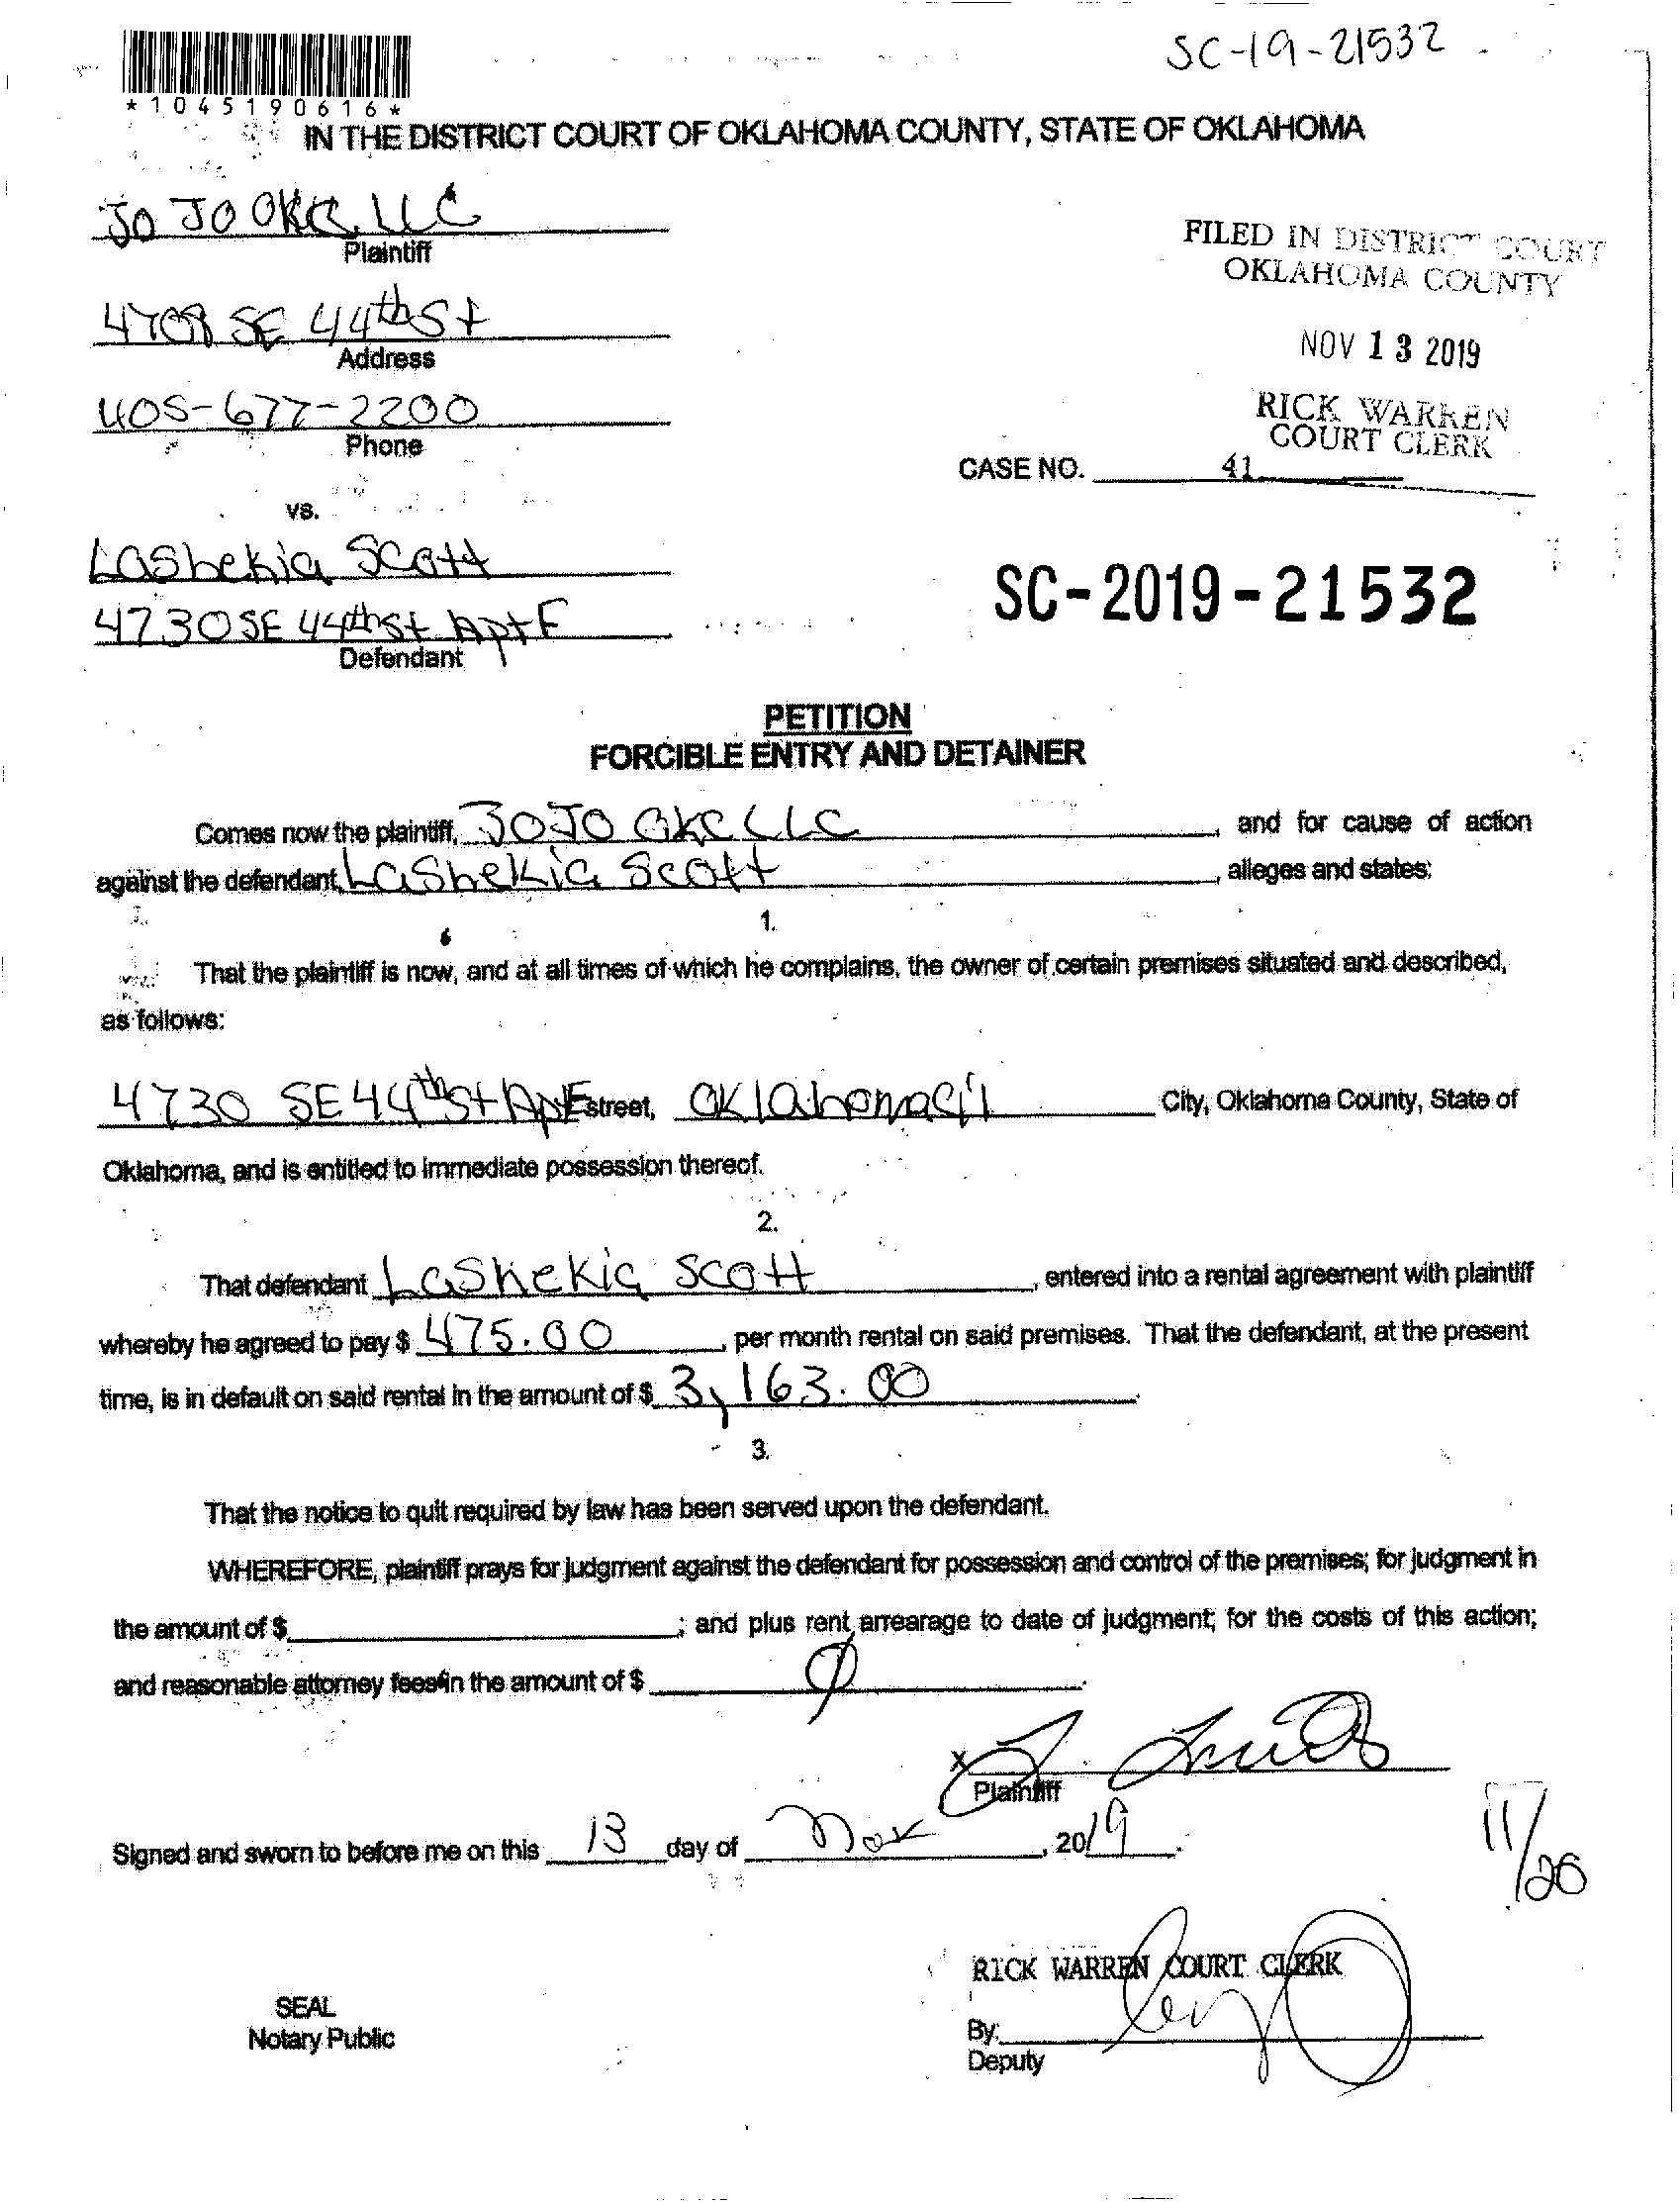 SC-19-21532
*1045190616*
IN THE DISTRICT COURT OF OKLAHOMA COUNTY, STATE OF OKLAHOMA
JO JO OKC LLC
Plaintiff
4708 SE 44th St
Address
405-677-2200
Phone
FILED IN DISTRICT COURT
OKLAHOMA COUNTY
NOV 13 2019
RICK WARREN
COURT CLERK
CASE NO. 41
vs.
Lashekia Scott
4730 SE 44th St Apt F
Defendant
SC-2019-21532
PETITION
FORCIBLE ENTRY AND DETAINER
Comes now the plaintiff, JOJO OKC LLC, and for cause of action
against the defendant, Lashekia Scott, alleges and states:
1.
That the plaintiff is now, and at all times of which he complains, the owner of certain premises situated and described,
as follows:
4730 SE 44th St Apt F street, Oklahoma City City, Oklahoma County, State of
Oklahoma, and is entitled to immediate possession thereof.
2.
That defendant Lashekia Scott, entered into a rental agreement with plaintiff
whereby he agreed to pay $ 475.00, per month rental on said premises. That the defendant, at the present
time, is in default on said rental in the amount of $ 3,163.00.
3.
That the notice to quit required by law has been served upon the defendant.
WHEREFORE, plaintiff prays for judgment against the defendant for possession and control of the premises; for judgment in
the amount of $; and plus rent arrearage to date of judgment; for the costs of this action;
and reasonable attorney fees in the amount of $ 0
x
Plaintiff
Signed and sworn to before me on this 13 day of Nov, 2019.
11/26
RICK WARREN COURT CLERK
SEAL
Notary Public
By:
Deputy